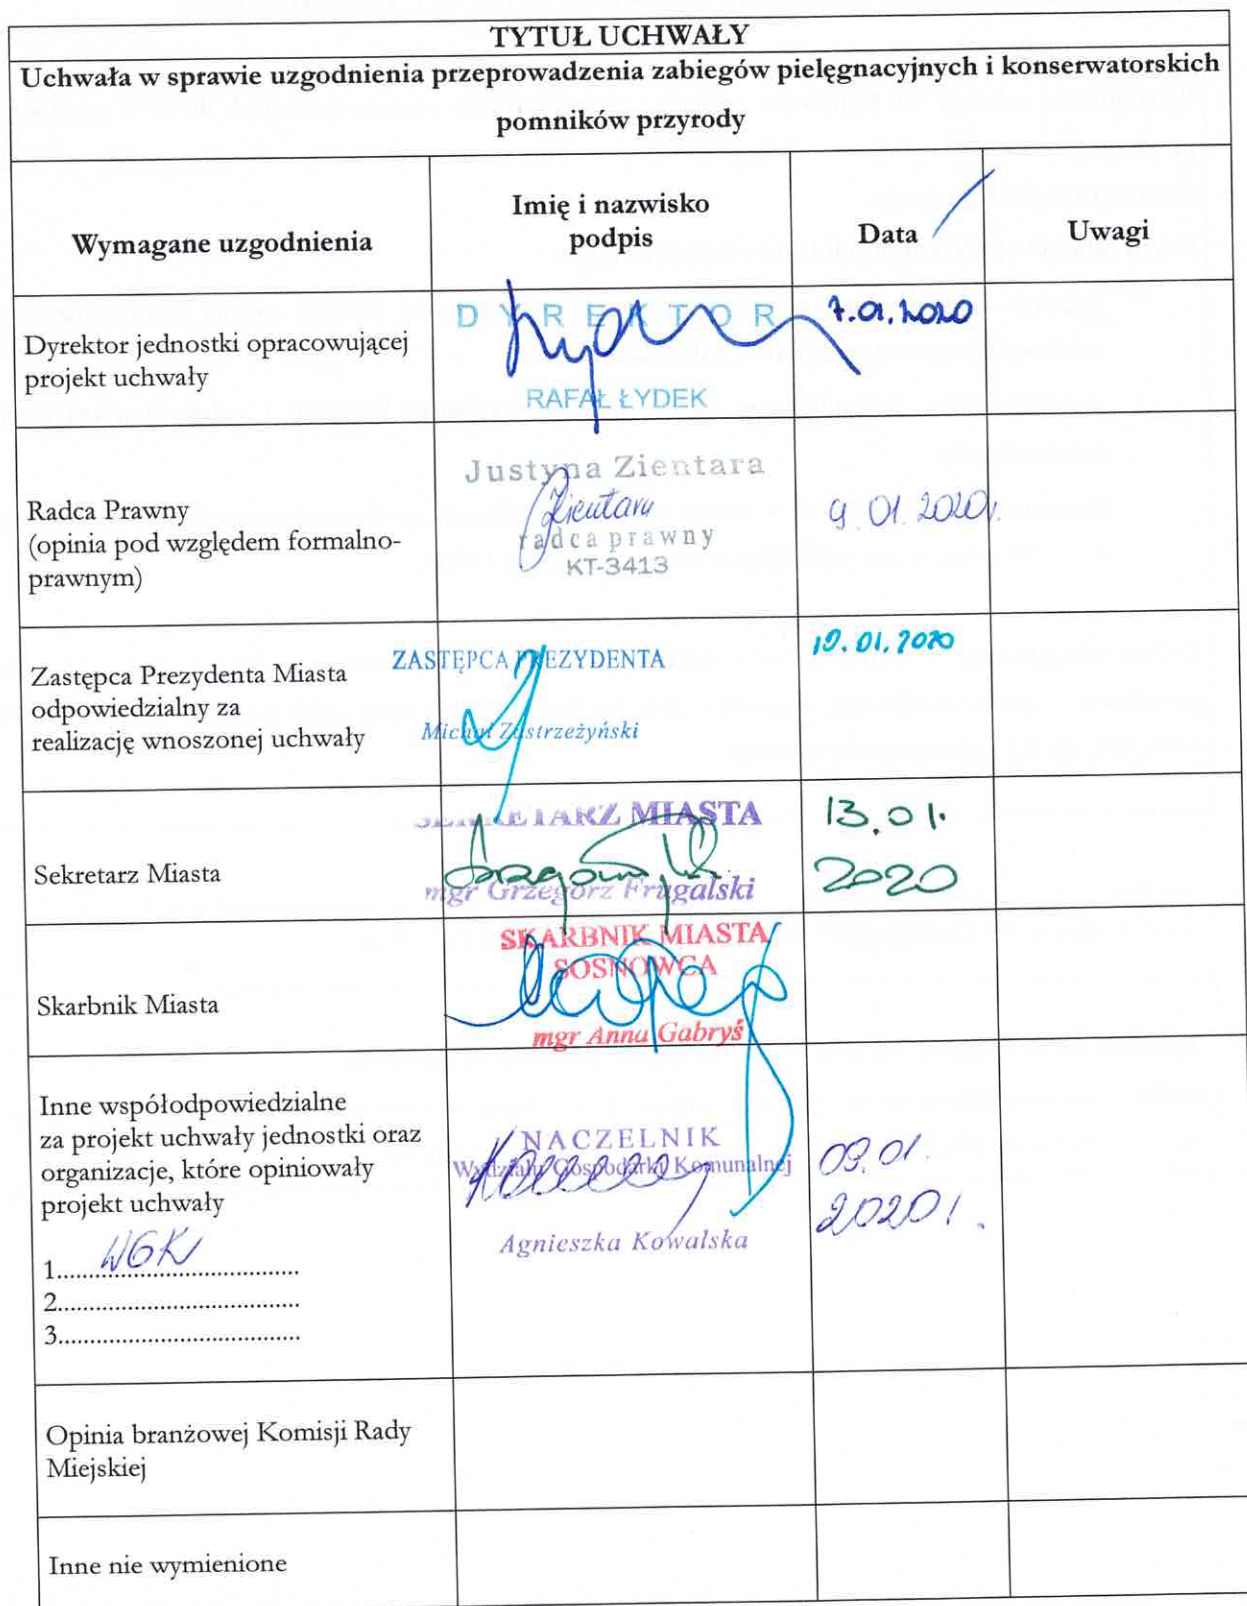 TYTUŁ UCHWAŁY
Uchwała w sprawie uzgodnienia przeprowadzenia zabiegów pielęgnacyjnych i konserwatorskich
pomników przyrody
Wymagane uzgodnienia
Imię i nazwisko
podpis
Data
Uwagi
Dyrektor jednostki opracowującej
projekt uchwały
DYREKTOR
RAFAŁ ŁYDEK
7.01.2020
Radca Prawny
(opinia pod względem formalno-
prawnym)
Justyna Zientara
Zientara
radca prawny
KT-3413
9.01.2020r.
Zastępca Prezydenta Miasta
odpowiedzialny za
realizację wnoszonej uchwały
ZASTĘPCA PREZYDENTA
Michał Zastrzeżyński
.01.2020
Sekretarz Miasta
SEKRETARZ MIASTA
mgr Grzegorz Frugalski
13.01.
2020
Skarbnik Miasta
SKARBNIK MIASTA
SOSNOWCA
mgr Anna Gabryś
Inne współodpowiedzialne
za projekt uchwały jednostki oraz
organizacje, które opiniowały
projekt uchwały
1. WGK
2.......................................
3.......................................
NACZELNIK
Wydziału Gospodarki Komunalnej
Agnieszka Kowalska
09.01.
2020r.
Opinia branżowej Komisji Rady
Miejskiej
Inne nie wymienione